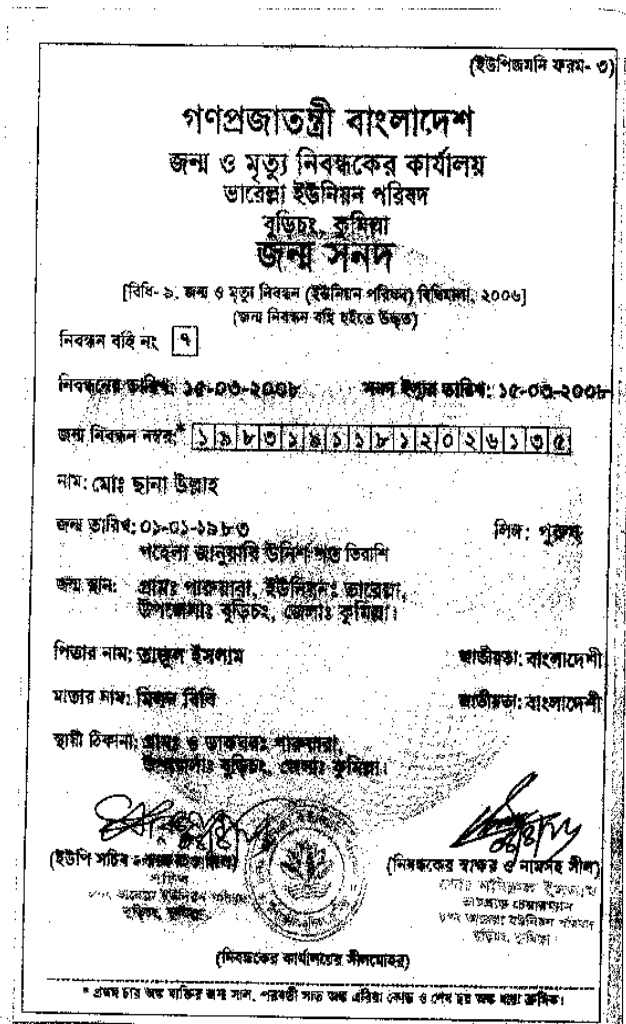 (ইউপিজমনি ফরম- ৩)
গণপ্রজাতন্ত্রী বাংলাদেশ
জন্ম ও মৃত্যু নিবন্ধকের কার্যালয়
ভারেল্লা ইউনিয়ন পরিষদ
বুড়িচং, কুমিল্লা
জন্ম সনদ
[বিধি- ৯, জন্ম ও মৃত্যু নিবন্ধন (ইউনিয়ন পরিষদ) বিধিমালা, ২০০৬]
(জন্ম নিবন্ধন বহি হইতে উদ্ধৃত)
নিবন্ধন বহি নং ৭
নিবন্ধনের তারিখ: ১৫-০৩-২০০৮ সনদ ইস্যুর তারিখ: ১৫-০৩-২০০৮
জন্ম নিবন্ধন নম্বর:* ১৯৮৩১৯১১৮১২০২৬১৩৫
নাম: মোঃ ছানা উল্লাহ
জন্ম তারিখ: ০১-০১-১৯৮৩ লিঙ্গ: পুরুষ
পহেলা জানুয়ারি উনিশ শত তিরাশি
জন্ম স্থান: গ্রামঃ পারুয়ারা, ইউনিয়নঃ ভারেল্লা,
উপজেলাঃ বুড়িচং, জেলাঃ কুমিল্লা।
পিতার নাম: ইসলাম জাতীয়তা: বাংলাদেশী
মাতার নাম: বিবি জাতীয়তা: বাংলাদেশী
স্থায়ী ঠিকানা: গ্রামঃ ও ডাকঘরঃ পারুয়ারা,
উপজেলাঃ বুড়িচং, জেলাঃ কুমিল্লা।
(ইউপি সচিব (নিবন্ধকের স্বাক্ষর ও নামসহ সীল)
ভারেল্লা ইউনিয়ন পরিষদ
বুড়িচং, কুমিল্লা।
ইসলাম
চেয়ারম্যান
ভারেল্লা ইউনিয়ন পরিষদ
বুড়িচং, কুমিল্লা।
(নিবন্ধকের কার্যালয়ের সীলমোহর)
* প্রথম চার অঙ্ক ব্যক্তির জন্ম সাল, পরবর্তী সাত অঙ্ক এরিয়া কোড ও শেষ ছয় অঙ্ক ক্রমিক।